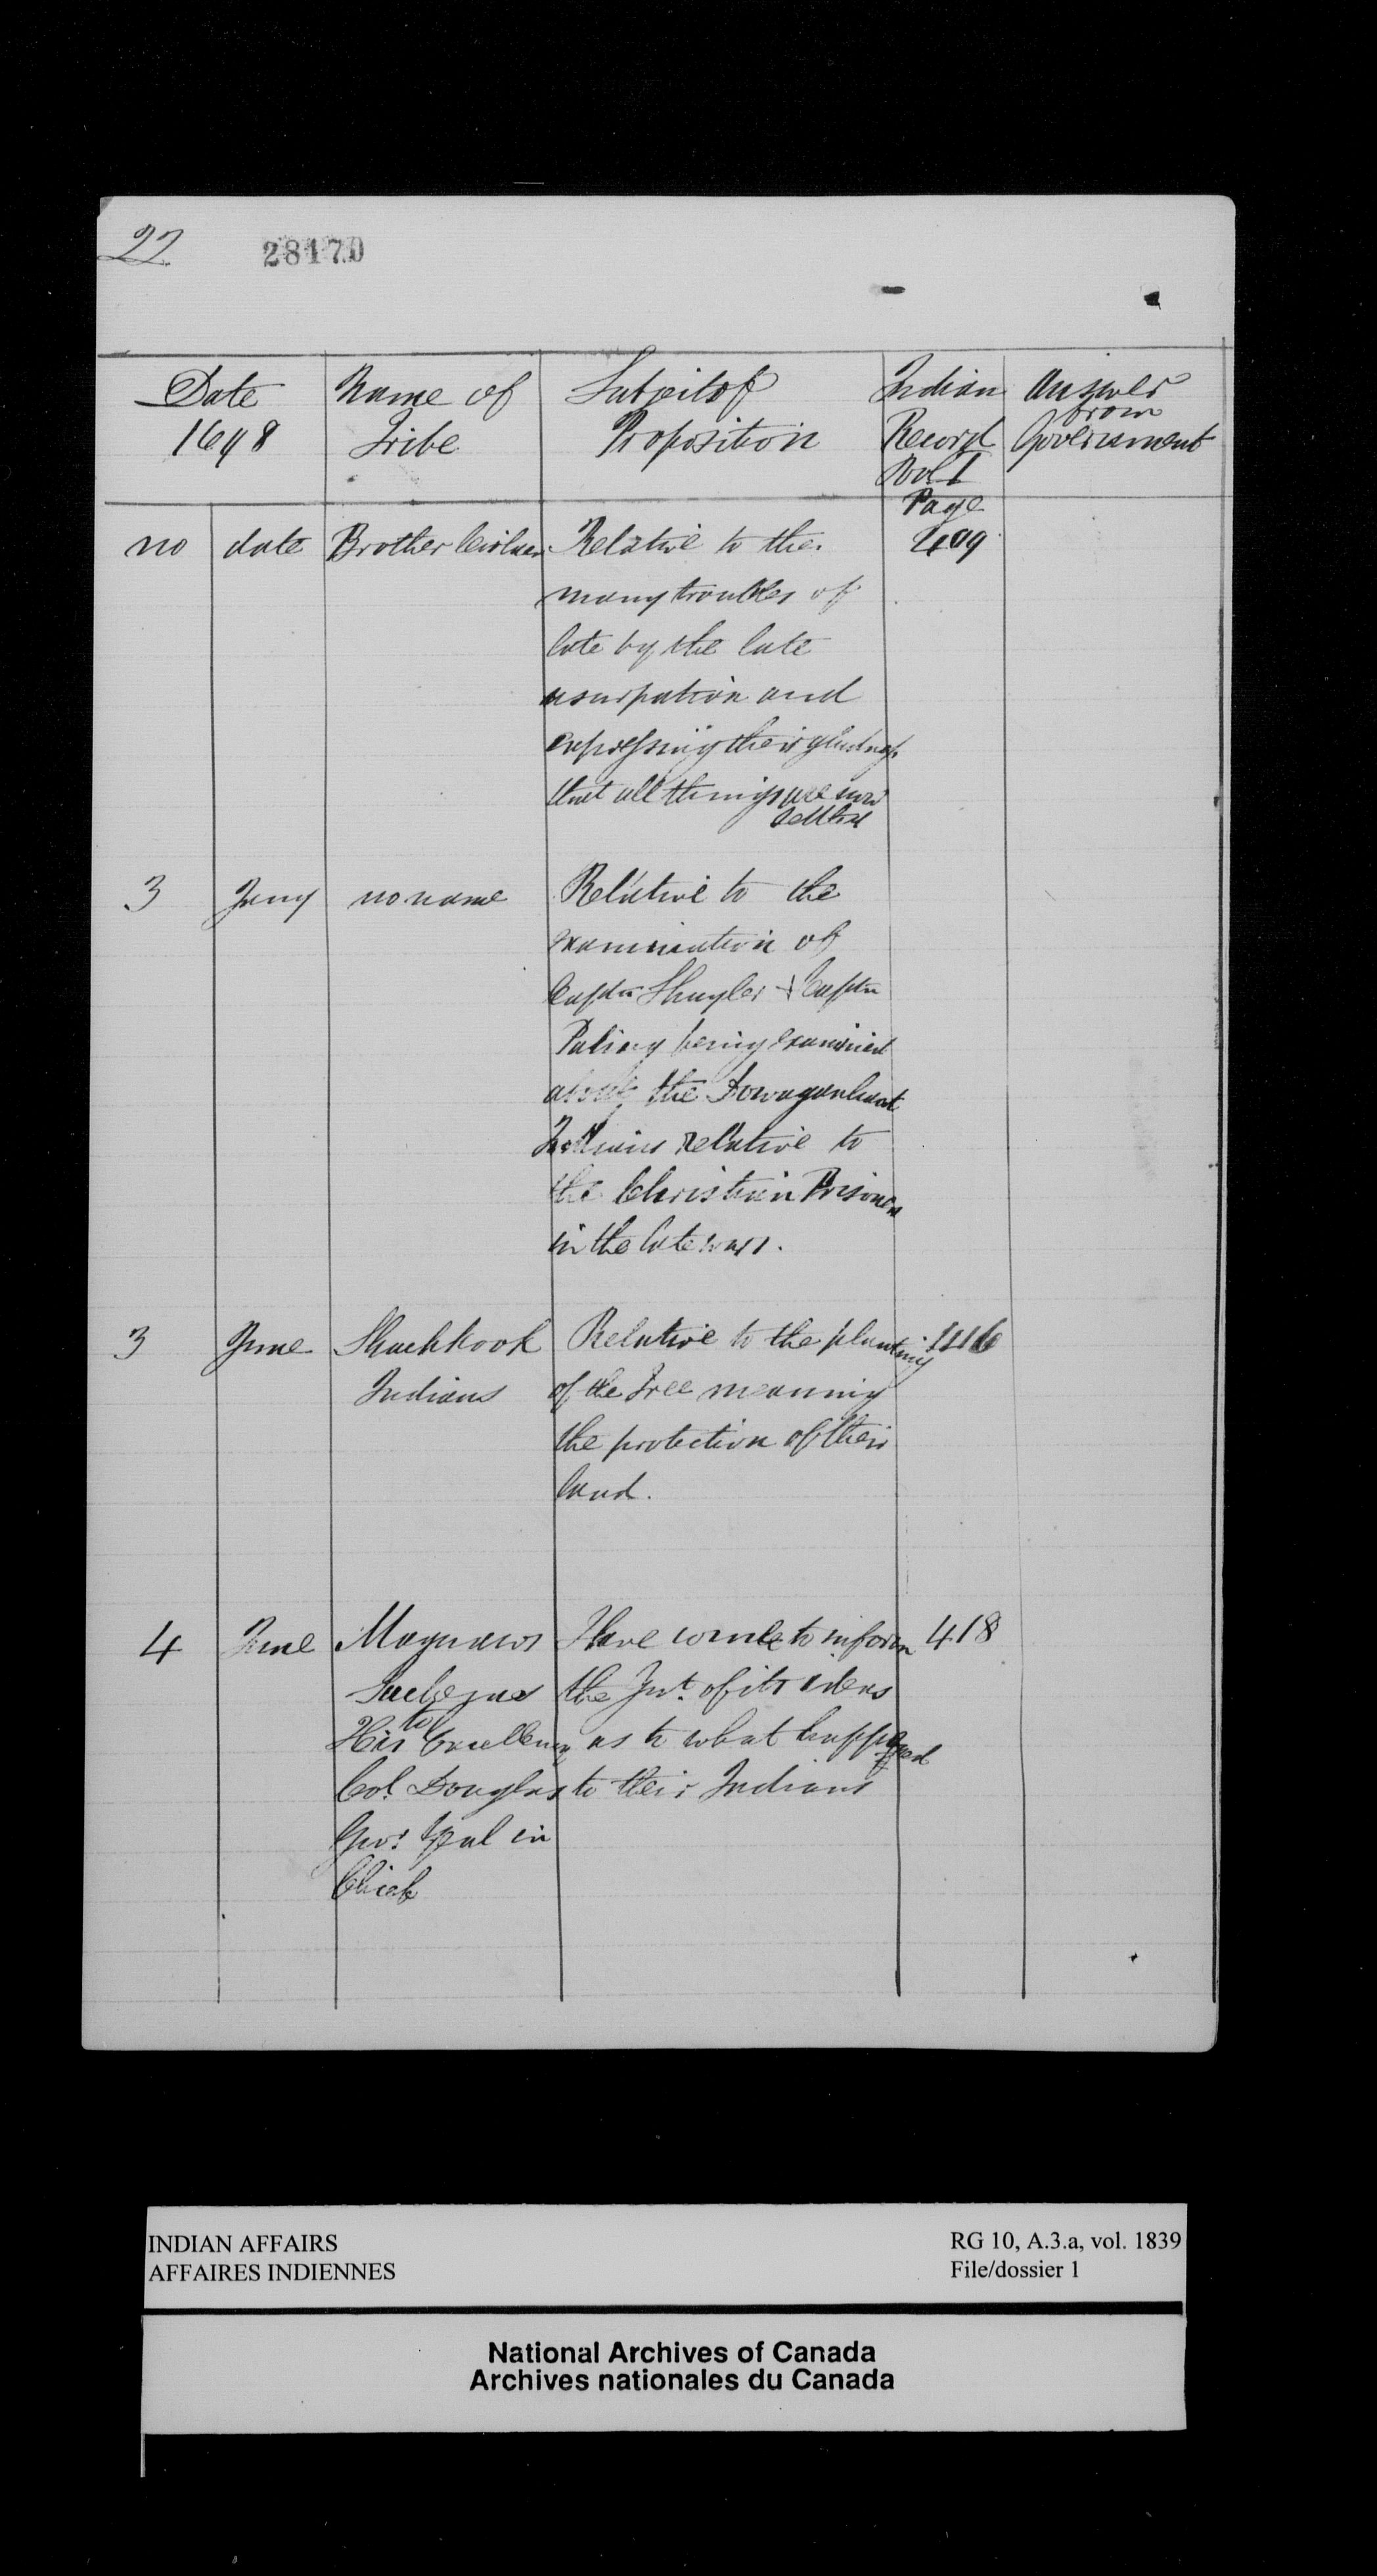 22 28170
Date 1698
Name of Tribe
Subject of Proposition
Indian Record Vol 1 Page
Answer from Government
no date Brother Relative to the 409
many troubles of
late by the late
usurpation and
expressing their gladness
that all things are now
settled
3 Jany no name Relative to the
examination of
Captn Shuyler & Captn
being examined
about the
Indians relative to
the Christian Prisoners
in the late war.
3 June Shachkook Relative to the planting 416
Indians of the Tree meaning
the protection of their
land.
4 June Maquaws Have come to inform 418
the of its
to
His Excellency as to what happened
Col. Douglas to their Indians
Govr in
Chief
INDIAN AFFAIRS RG 10, A.3.a, vol. 1839
AFFAIRES INDIENNES File/dossier 1
National Archives of Canada
Archives nationales du Canada